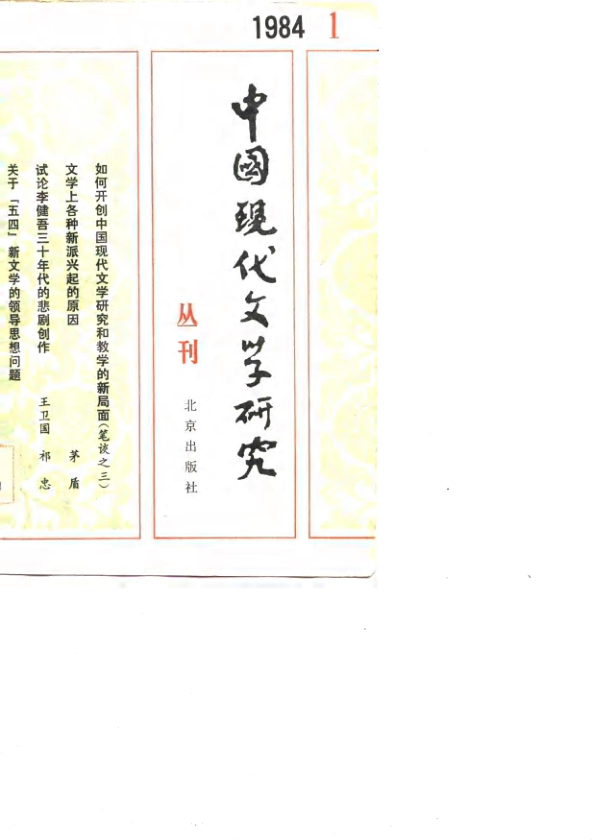 1984 1
中國現代文学研究
丛刊
北京出版社
如何开创中国现代文学研究和教学的新局面(笔谈之三)
文学上各种新派兴起的原因 茅盾
试论李健吾三十年代的悲剧创作 王卫国 祁忠
关于「五四」新文学的领导思想问题